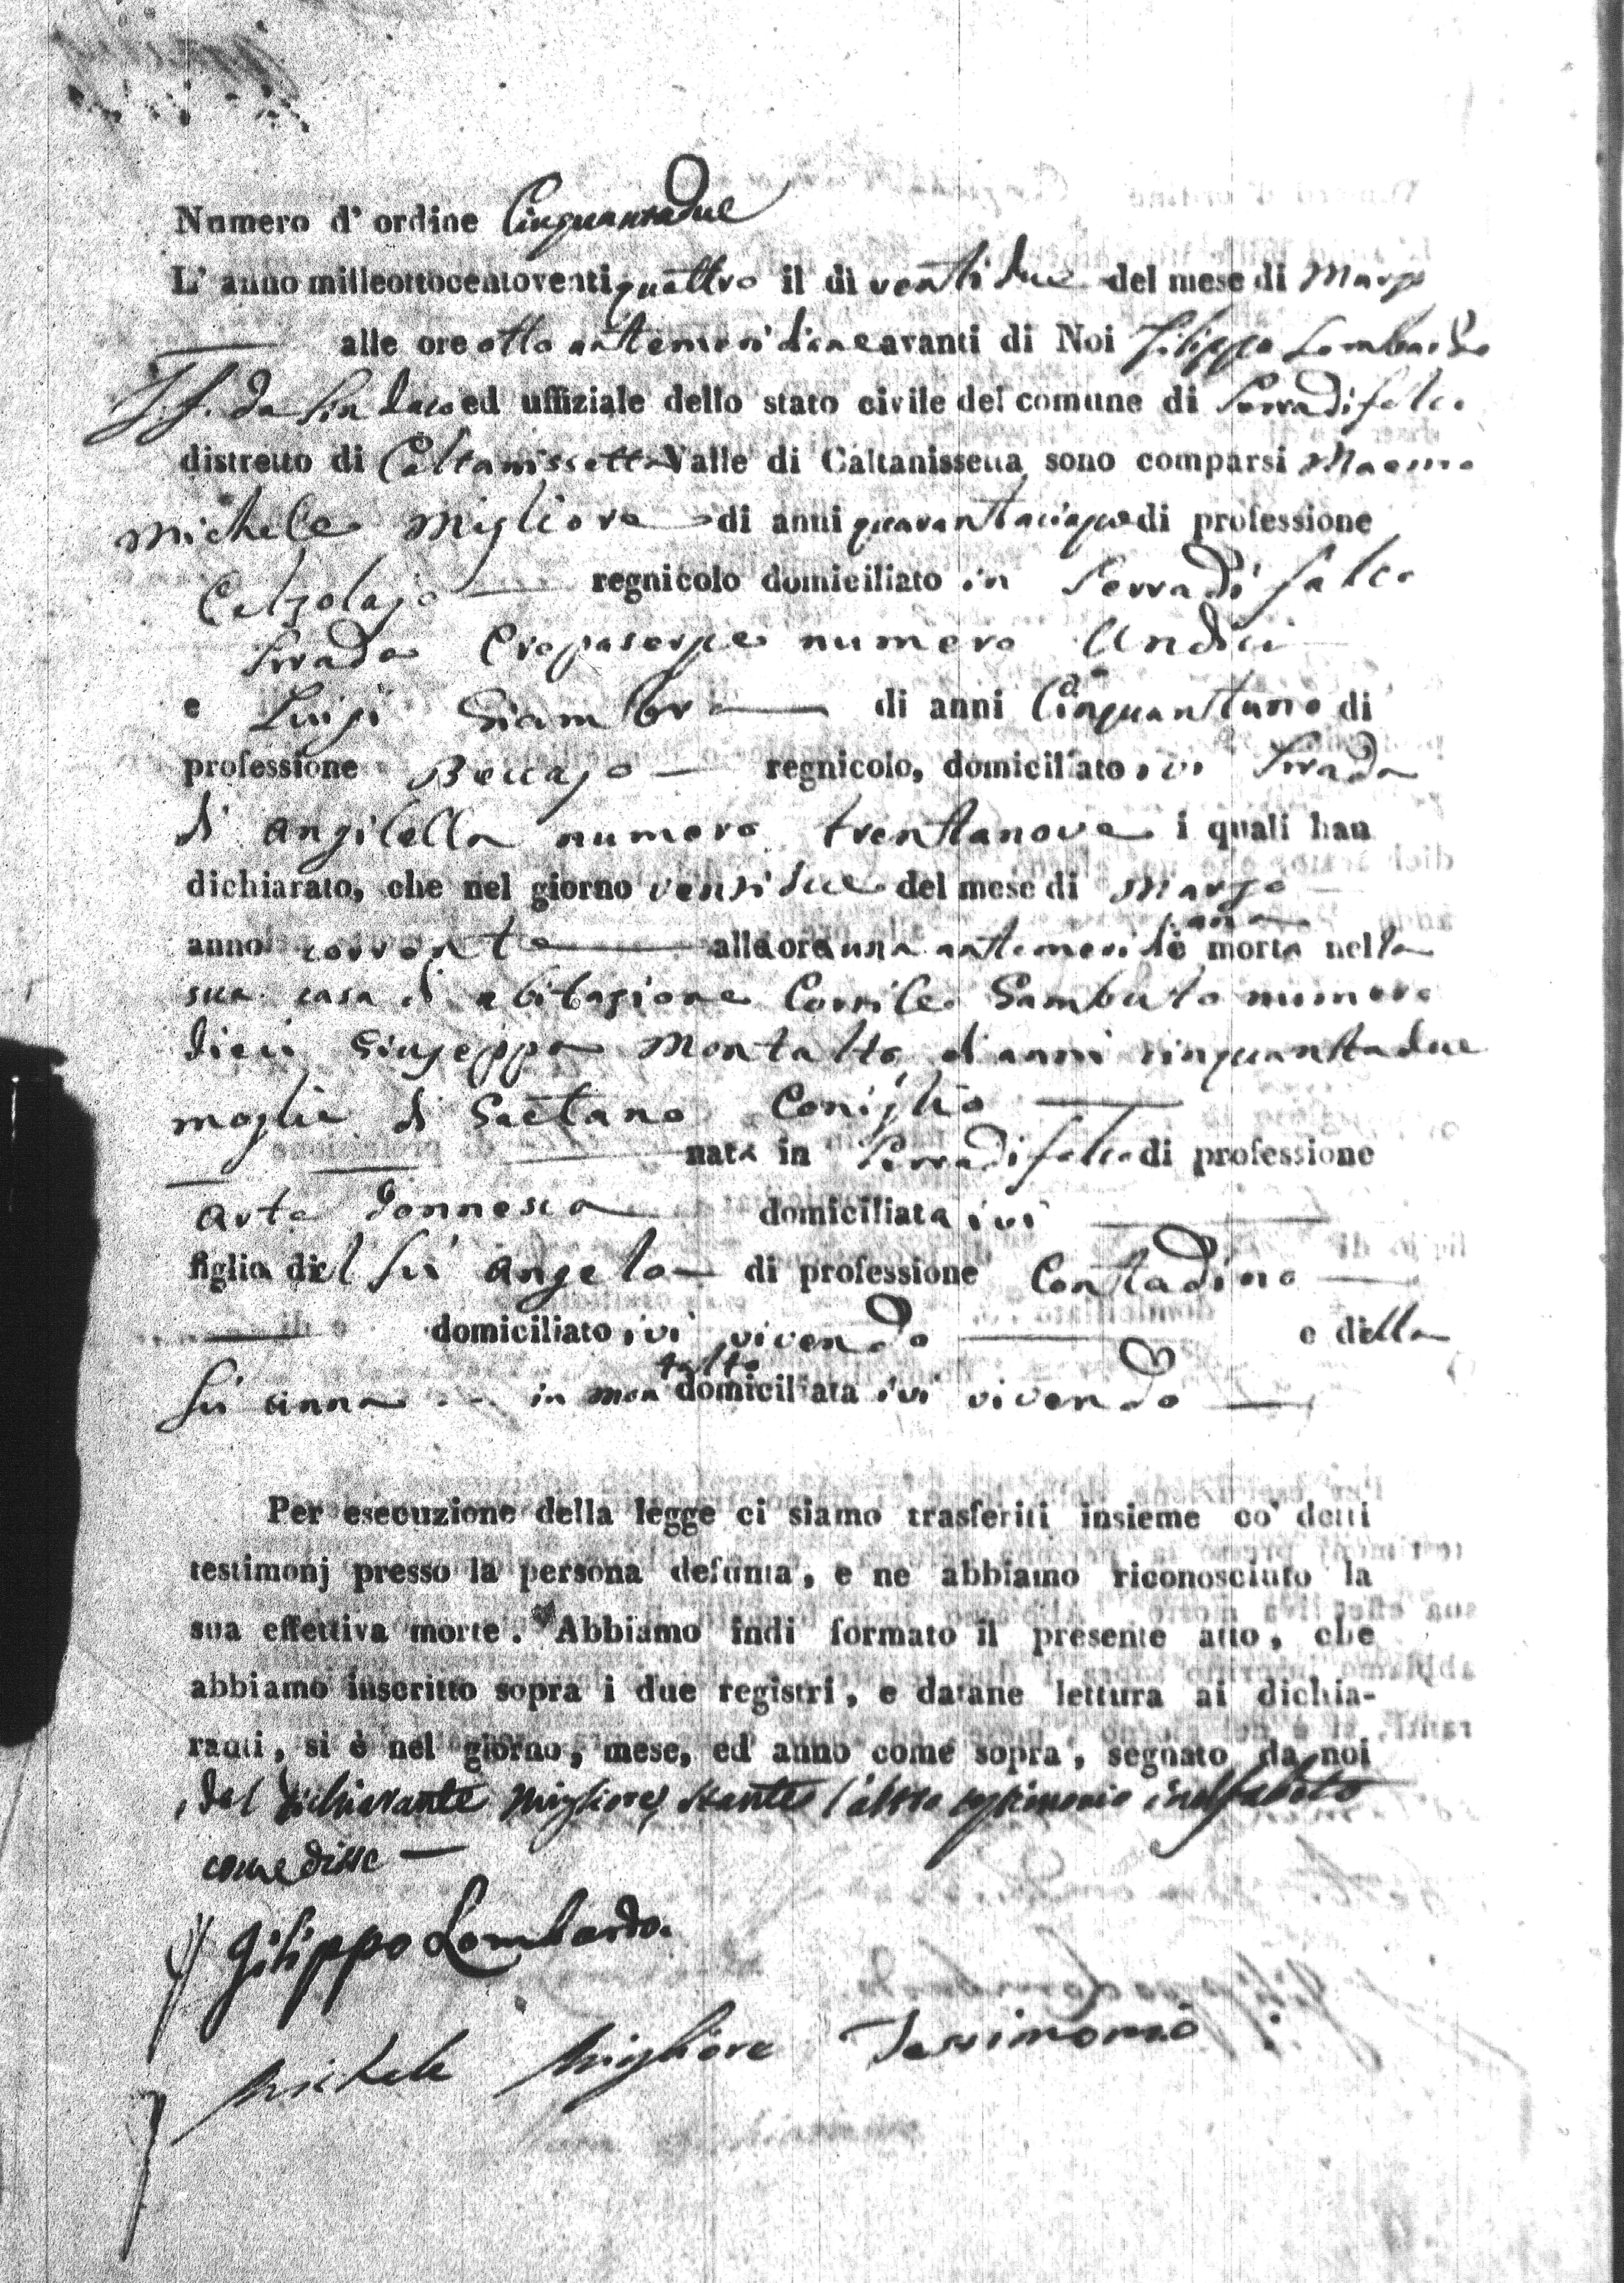 Numero d' ordine Cinquantadue
L' anno milleottocentoventiquattro il di ventidue del mese di Marzo
alle ore otto antemeridiane avanti di Noi Filippo Lombardo
F. f. da Sindaco ed uffiziale dello stato civile del comune di Serradifalco
distretto di Caltanissetta Valle di Caltanissetta sono comparsi Maestro
Michele Migliore di anni quarantacinque di professione
Calzolajo regnicolo domiciliato in Serradifalco
Strada Crepaserpe numero Undici
e Luigi Giambra di anni Cinquantuno di
professione Beccajo regnicolo, domiciliato ivi Strada
di Angilella numero trentanove i quali han
dichiarato, che nel giorno ventidue del mese di Marzo
anno corrente alle ore una antemeridiana è morta nella
sua casa di abitazione Cortile Sambuto numero
dieci Giuseppa Montalto di anni cinquantadue
moglie di Gaetano Coniglio
nata in Serradifalco di professione
Arte donnesca domiciliata ivi
figlia del fù Angelo di professione Contadino
domiciliato ivi vivendo e della
fù Anna in Montalto domiciliata ivi vivendo
Per esecuzione della legge ci siamo trasferiti insieme co' detti
testimonj presso la persona defunta, e ne abbiamo riconosciuto la
sua effettiva morte. Abbiamo indi formato il presente atto, che
abbiamo inscritto sopra i due registri, e datane lettura ai dichia-
ranti, si è nel giorno, mese, ed anno come sopra, segnato da noi
, dal dichiarante Migliore, stante l'altro testimonio inalfabeto
come disse
Filippo Lombardo.
Michele Migliore Testimonio